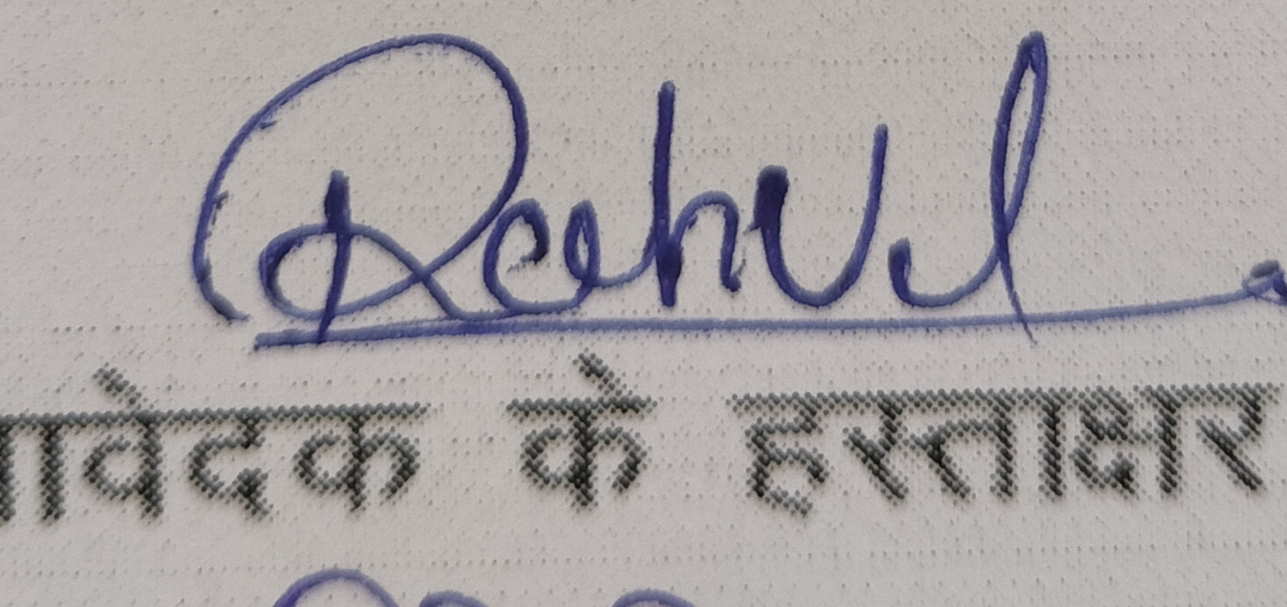 Rahul
आवेदक के हस्ताक्षर